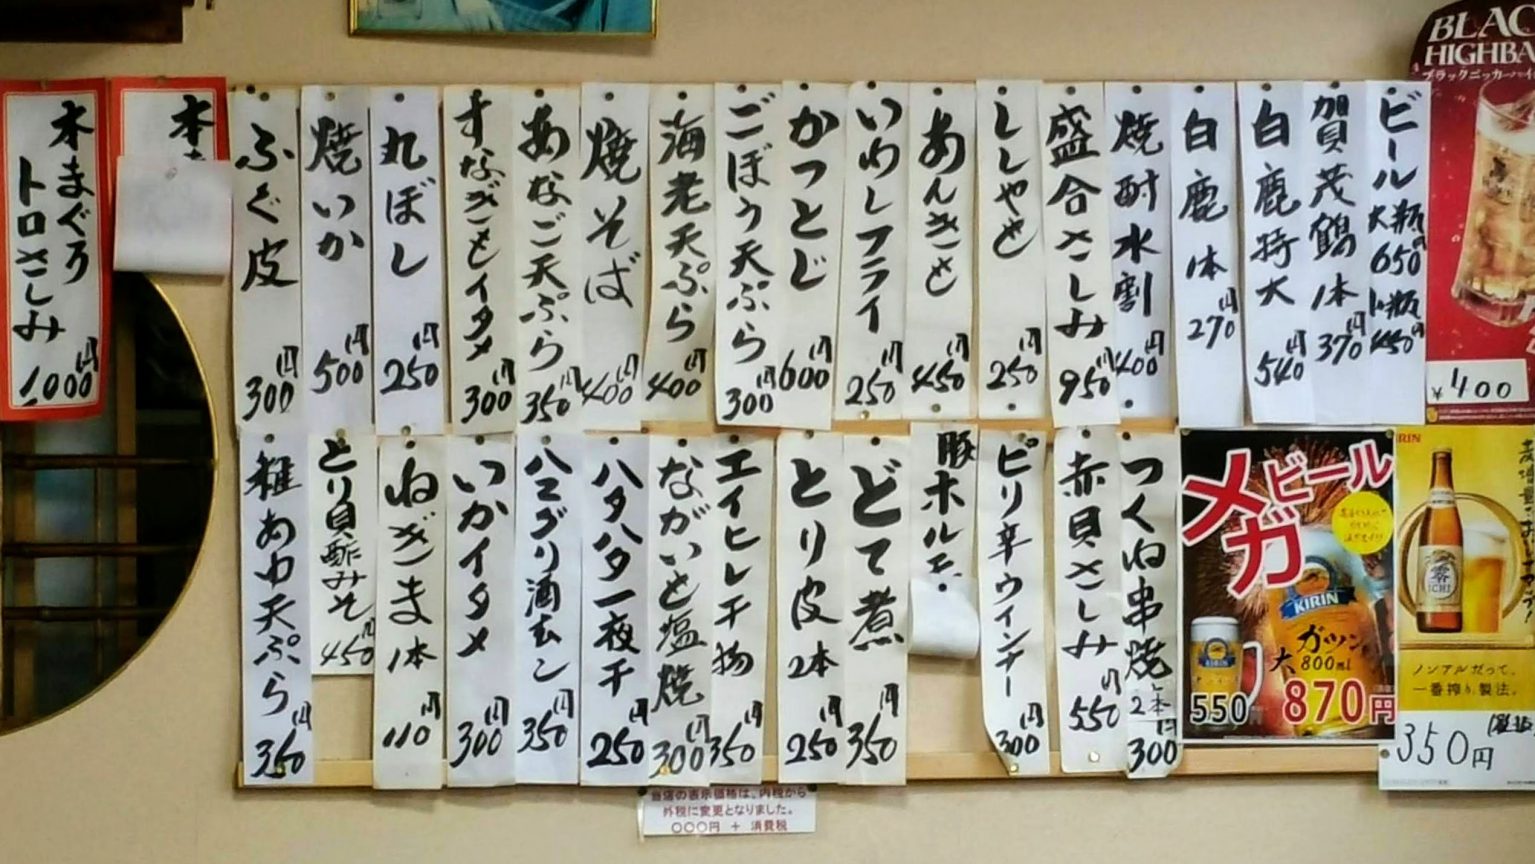 BLAC
HIGHBA
ビール大瓶650円小瓶450円
賀茂鶴1本370円
白鹿特大540円
白鹿1本270円
焼酎水割400円
盛合さしみ950円
ししゃも250円
あんきも450円
いわしフライ250円
かつとじ600円
ごぼう天ぷら300円
海老天ぷら400円
焼そば400円
あなご天ぷら350円
すなぎもイタメ300円
丸ぼし250円
焼いか500円
ふぐ皮300円
本
本まぐろ
トロさしみ
1000円
¥400
つくね串焼2本300円
赤貝さしみ550円
ピリ辛ウインナー300円
豚ホルモ
どて煮350円
とり皮2本250円
エイヒレ干物350円
ながいも塩焼300円
ハタハタ一夜干250円
ハマグリ酒むし350円
いかイタメ300円
ねぎま1本110円
とり貝酢みそ450円
稚あゆ天ぷら350円
メガ
ビール
KIRIN
ガツン
大800ml
550円
870円
零
ICHI
ノンアルだって、
一番搾り製法。
350円
当店の表示価格は、内税から
外税に変更となりました。
○○○円 + 消費税